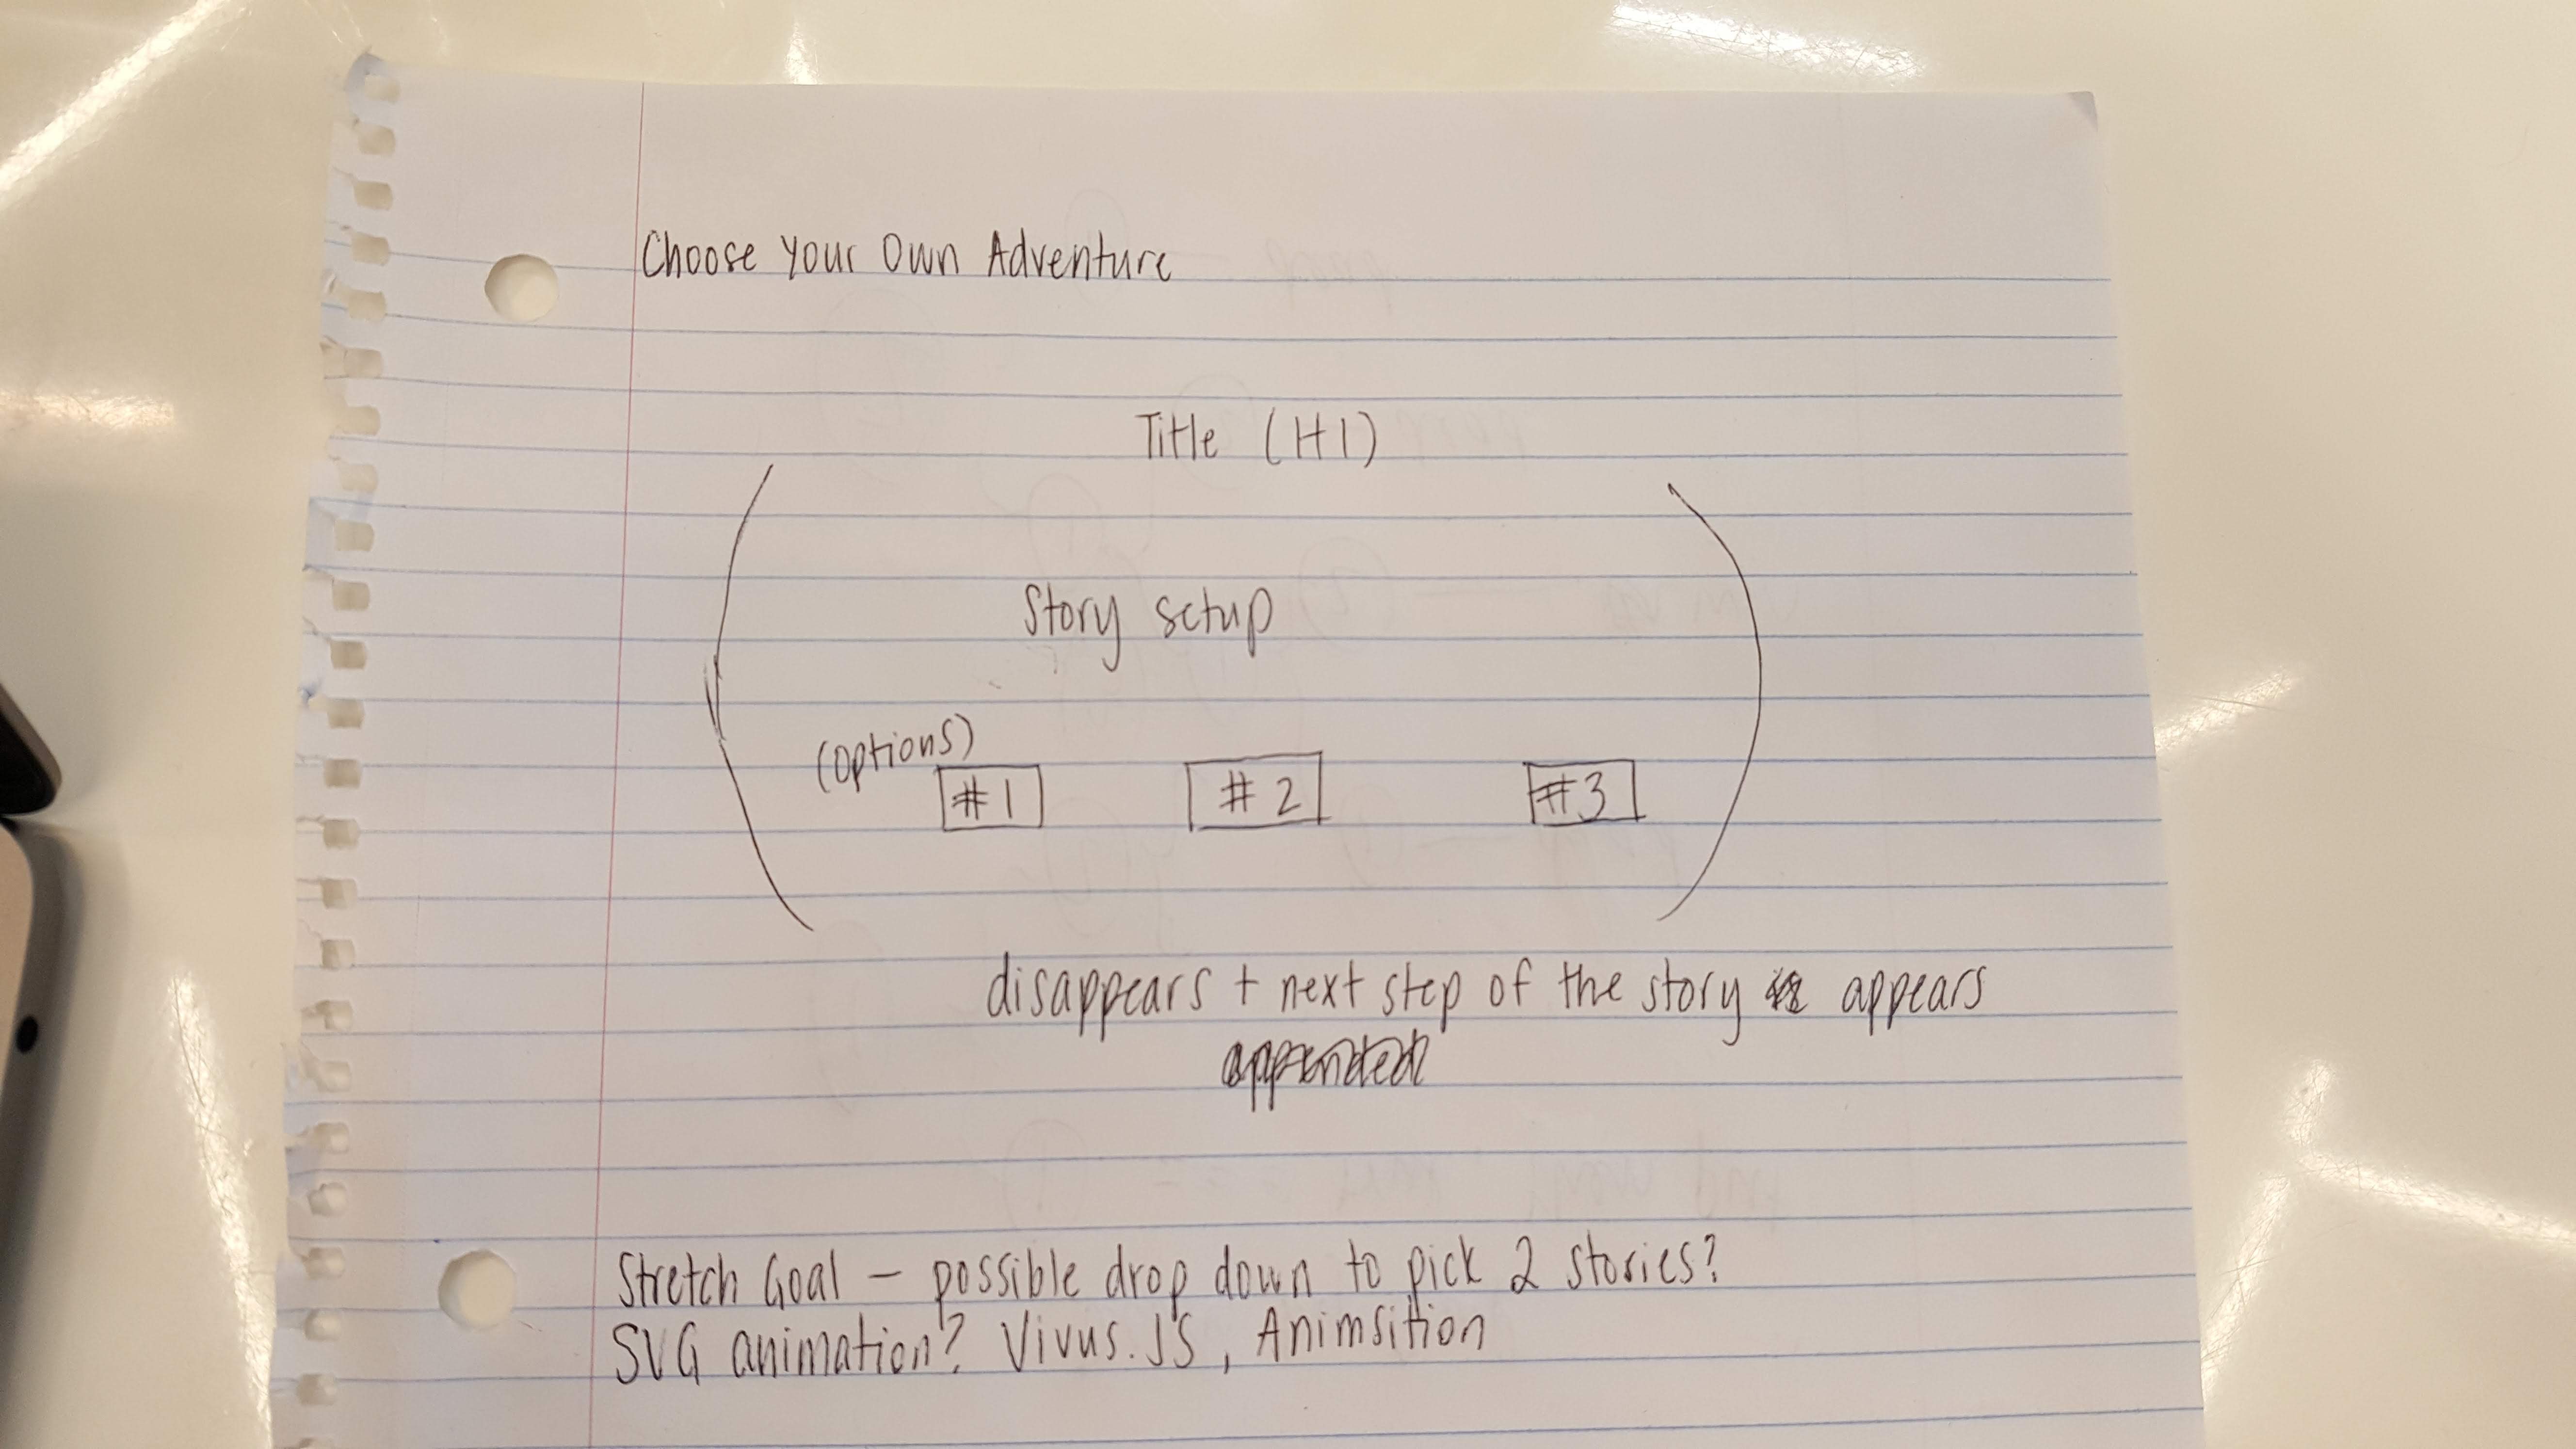 Choose Your Own Adventure
Title (H1)
Story setup
(options)
#1 #2 #3
disappears + next step of the story appears
appended
Stretch Goal – possible drop down to pick 2 stories?
SVG animation? Vivus.JS, Animsition